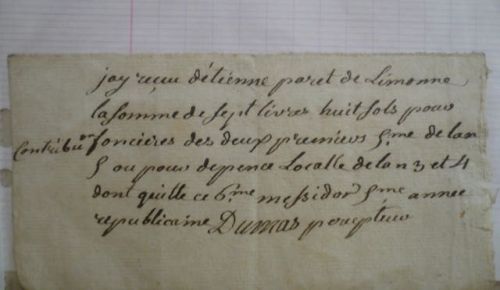 jay reçu détienne paret de Limonne
la somme de sept livres huit sols pour
Contribuon foncieres des deux premiers 5.me de lan
5 ou pour depence Localle de lan 3 et 4
dont quitte ce 6.me messidor 5me année
republicaine Dumas percepteur